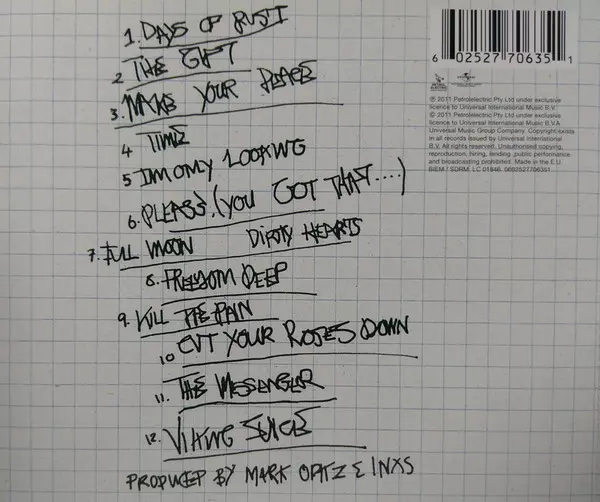 1. DAYS OF RUST
2 THE GIFT
3. MAKE YOUR PEACE
4 TIME
5 I'M ONLY LOOKING
6. PLEASE, (YOU GOT THAT....)
7. FULL MOON DIRTY HEARTS
8. FREEDOM DEEP
9. KILL THE PAIN
10 CUT YOUR ROSES DOWN
11. THE MESSENGER
12. VIKING JUICE
PRODUCED BY MARK OPITZ & INXS
6 02527 70635 1
℗ 2011 Petrolelectric Pty Ltd under exclusive
licence to Universal International Music B.V.
© 2011 Petrolelectric Pty Ltd under exclusive
licence to Universal International Music B.V.A
Universal Music Group Company. Copyright exists
in all records issued by Universal International
B.V. All rights reserved. Unauthorised copying,
reproduction, hiring, lending, public performance
and broadcasting prohibited. Made in the E.U.
BIEM / SDRM. LC 01846. 0602527706351